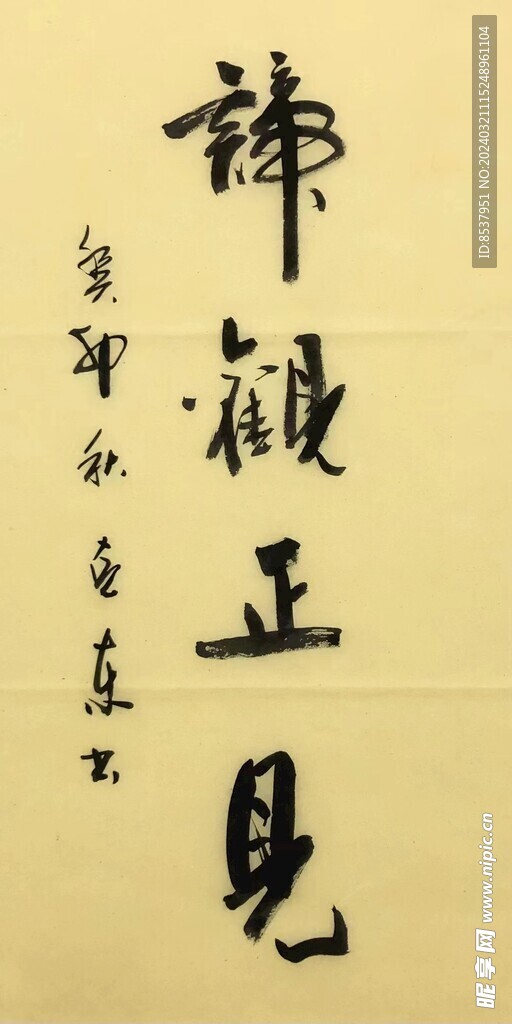 諦觀正見
癸卯秋
东书
ID:8537951 NO:20240321115248961104
昵享网 www.nipic.cn